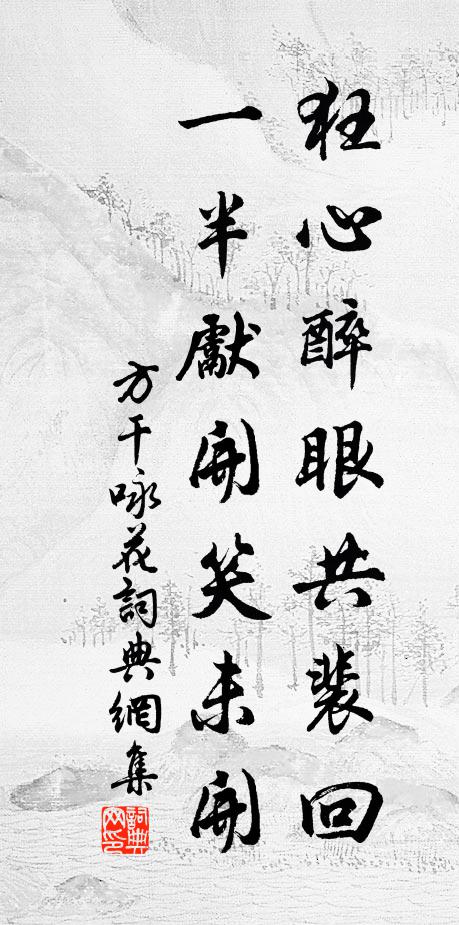 狂心醉眼共裴回
一半獻開笑未開
方干咏花詞典網集
詞典网印